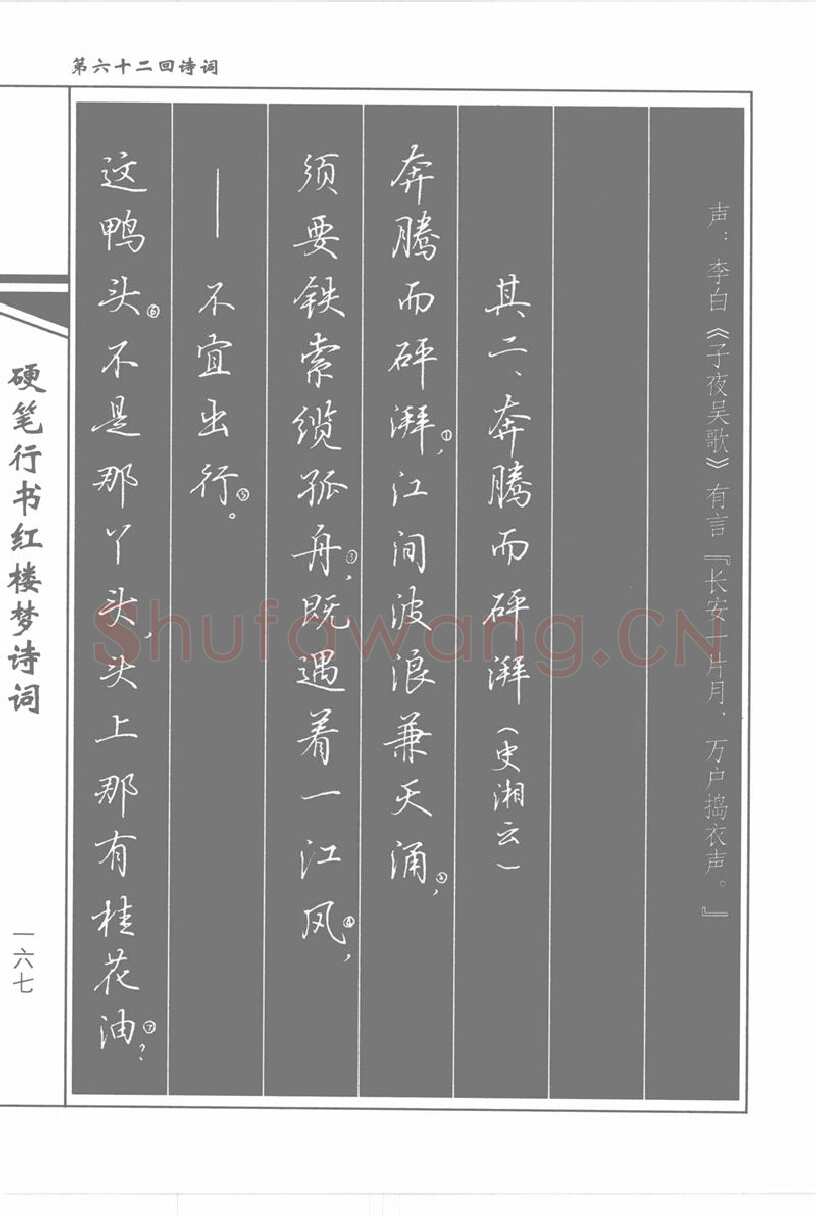 第六十二回诗词
声：李白《子夜吴歌》有言『长安一片月，万户捣衣声。』
其二、奔腾而砰湃（史湘云）
奔腾而砰湃①，江间波浪兼天涌②，
须要铁索缆孤舟③，既遇着一江风④，
——不宜出行⑤。
这鸭头⑥不是那丫头，头上那有桂花油⑦？
硬笔行书红楼梦诗词
一六七
Shufawang.CN